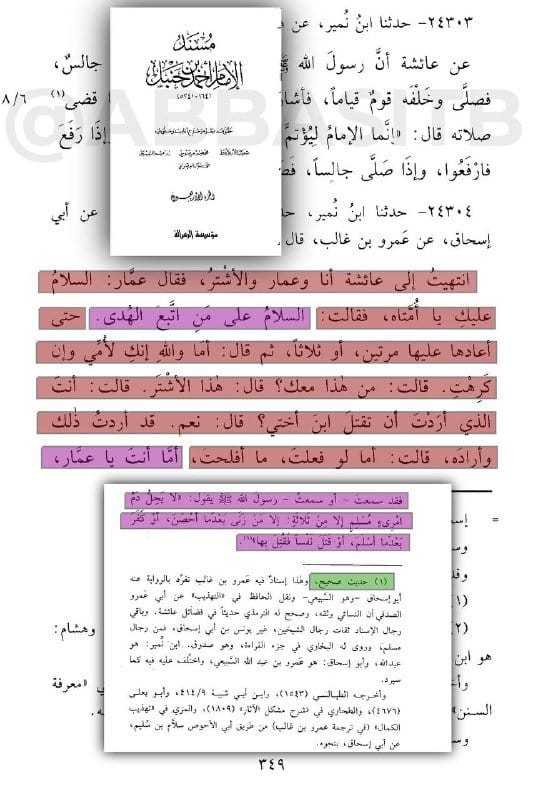 @ABBASITB
٢٤٣٠٣- حدثنا ابنُ نُمير، عن
مسند
الإمام أحمد بن حنبل
(١٦٤-٢٤١هـ)
مؤسسة الرسالة
عن عائشة أنَّ رسولَ الله ﷺ جالسٌ،
فصلَّى وخَلْفَه قومٌ قياماً، فأشارَ قضى(١) ٨/٦
صلاته قال: «إنَّما الإمامُ ليُؤتَمَّ إذَا رَفَعَ
فارْفَعُوا، وإذَا صَلَّى جالِساً،
٢٤٣٠٤- حدثنا ابنُ نُمير، عن أبي
إسحاق، عن عَمرو بن غالب، قال
انتهيتُ إلى عائشة أنا وعمار والأشْتَرُ، فقال عمَّار: السلامُ
عليكِ يا أُمَّتاه، فقالت: السلامُ على مَنِ اتَّبعَ الهُدى. حتى
أعادها عليها مرتين، أو ثلاثاً، ثم قال: أمَا واللهِ إنكِ لأُمِّي وإن
كَرِهْتِ. قالت: من هٰذا معك؟ قال: هٰذا الأشْتَر. قالت: أنتَ
الذي أرَدْتَ أن تقتلَ ابنَ أختي؟ قال: نعم. قد أردتُ ذٰلك
وأرادَه، قالت: أما لو فعلتَ، ما أفلحتَ، أمَّا أنتَ يا عمَّار،
فقد سمعتَ - أو سمعتُ - رسولَ الله ﷺ يقول: «لا يَحِلُّ دَمُ
امْرِىءٍ مُسْلِمٍ إلا مِنْ ثَلاثَةٍ: إلا مَنْ زَنَى بَعْدَما أحْصَنَ، أوْ كَفَرَ
بَعْدَما أسْلَمَ، أوْ قَتَلَ نَفْساً فَقُتِلَ بِها»(١).
(١) حديث صحيح، وهٰذا إسنادٌ فيه عَمرو بن غالب تفرَّد بالرواية عنه
أبو إسحاق -وهو السَّبيعي- ونقل الحافظ في «التهذيب» عن أبي عمرو
الصدفي أن النسائي وثقه، وصحح له الترمذي حديثاً في فضائل عائشة. وباقي
رجال الإسناد ثقات رجال الشيخين، غير يونس بن أبي إسحاق، فمن رجال
مسلم، وروى له البخاري في جزء القراءة، وهو صدوق. ابن نُمير: هو
عبدالله، وأبو إسحاق: هو عَمرو بن عبد الله السَّبيعي، واختُلف عليه فيه كما
سيرد.
وأخرجه الطيالسي (١٥٤٣)، وابن أبي شيبة ٤١٤/٩، وأبو يعلى
(٤٦٧٦)، والطحاوي في «شرح مشكل الآثار» (١٨٠٩)، والمزي في «تهذيب
الكمال» (في ترجمة عمرو بن غالب) من طريق أبي الأحوص سلاَّم بن سُليم،
عن أبي إسحاق، بنحوه.
(١)
(٢) وهشام:
هو ابن
«معرفة
السنن»
٣٤٩